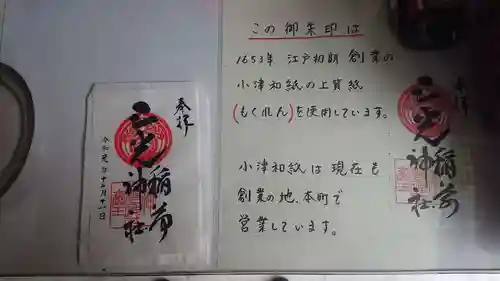 この御朱印は
1653年 江戸初期 創業の
小津和紙の上質紙
(もくれん)を使用しています。
小津和紙は現在も
創業の地、本町で
営業しています。
奉拝
三光稲荷神社
令和元年十二月十一日
奉拝
三光稲荷神社